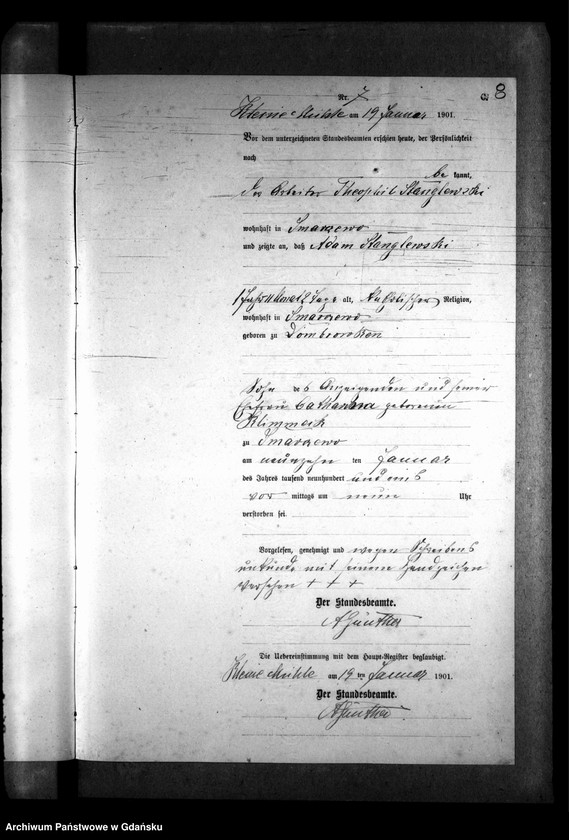 8
Nr. 7
Kleine Mühle am 19 Januar 1901.
Vor dem unterzeichneten Standesbeamten erschien heute, der Persönlichkeit
nach
be kannt,
der Arbeiter Theophil Stanglewski
wohnhaft in Smarzewo
und zeigte an, daß Adam Stanglewski
1 Jahr 11 Monat 2 Tage alt, katholischer Religion,
wohnhaft in Smarzewo
geboren zu
Sohn des Anzeigenden und seiner
Ehefrau Catharina geborenen
zu Smarzewo
am neunzehn ten Januar
des Jahres tausend neunhundert und eins
vor mittags um neun Uhr
verstorben sei.
Vorgelesen, genehmigt und wegen Schreibens
unkunde mit seinem Handzeichen
versehen + + +
Der Standesbeamte.
A Günther
Die Uebereinstimmung mit dem Haupt-Register beglaubigt.
Kleine Mühle am 19 ten Januar 1901.
Der Standesbeamte.
A Günther
Archiwum Państwowe w Gdańsku